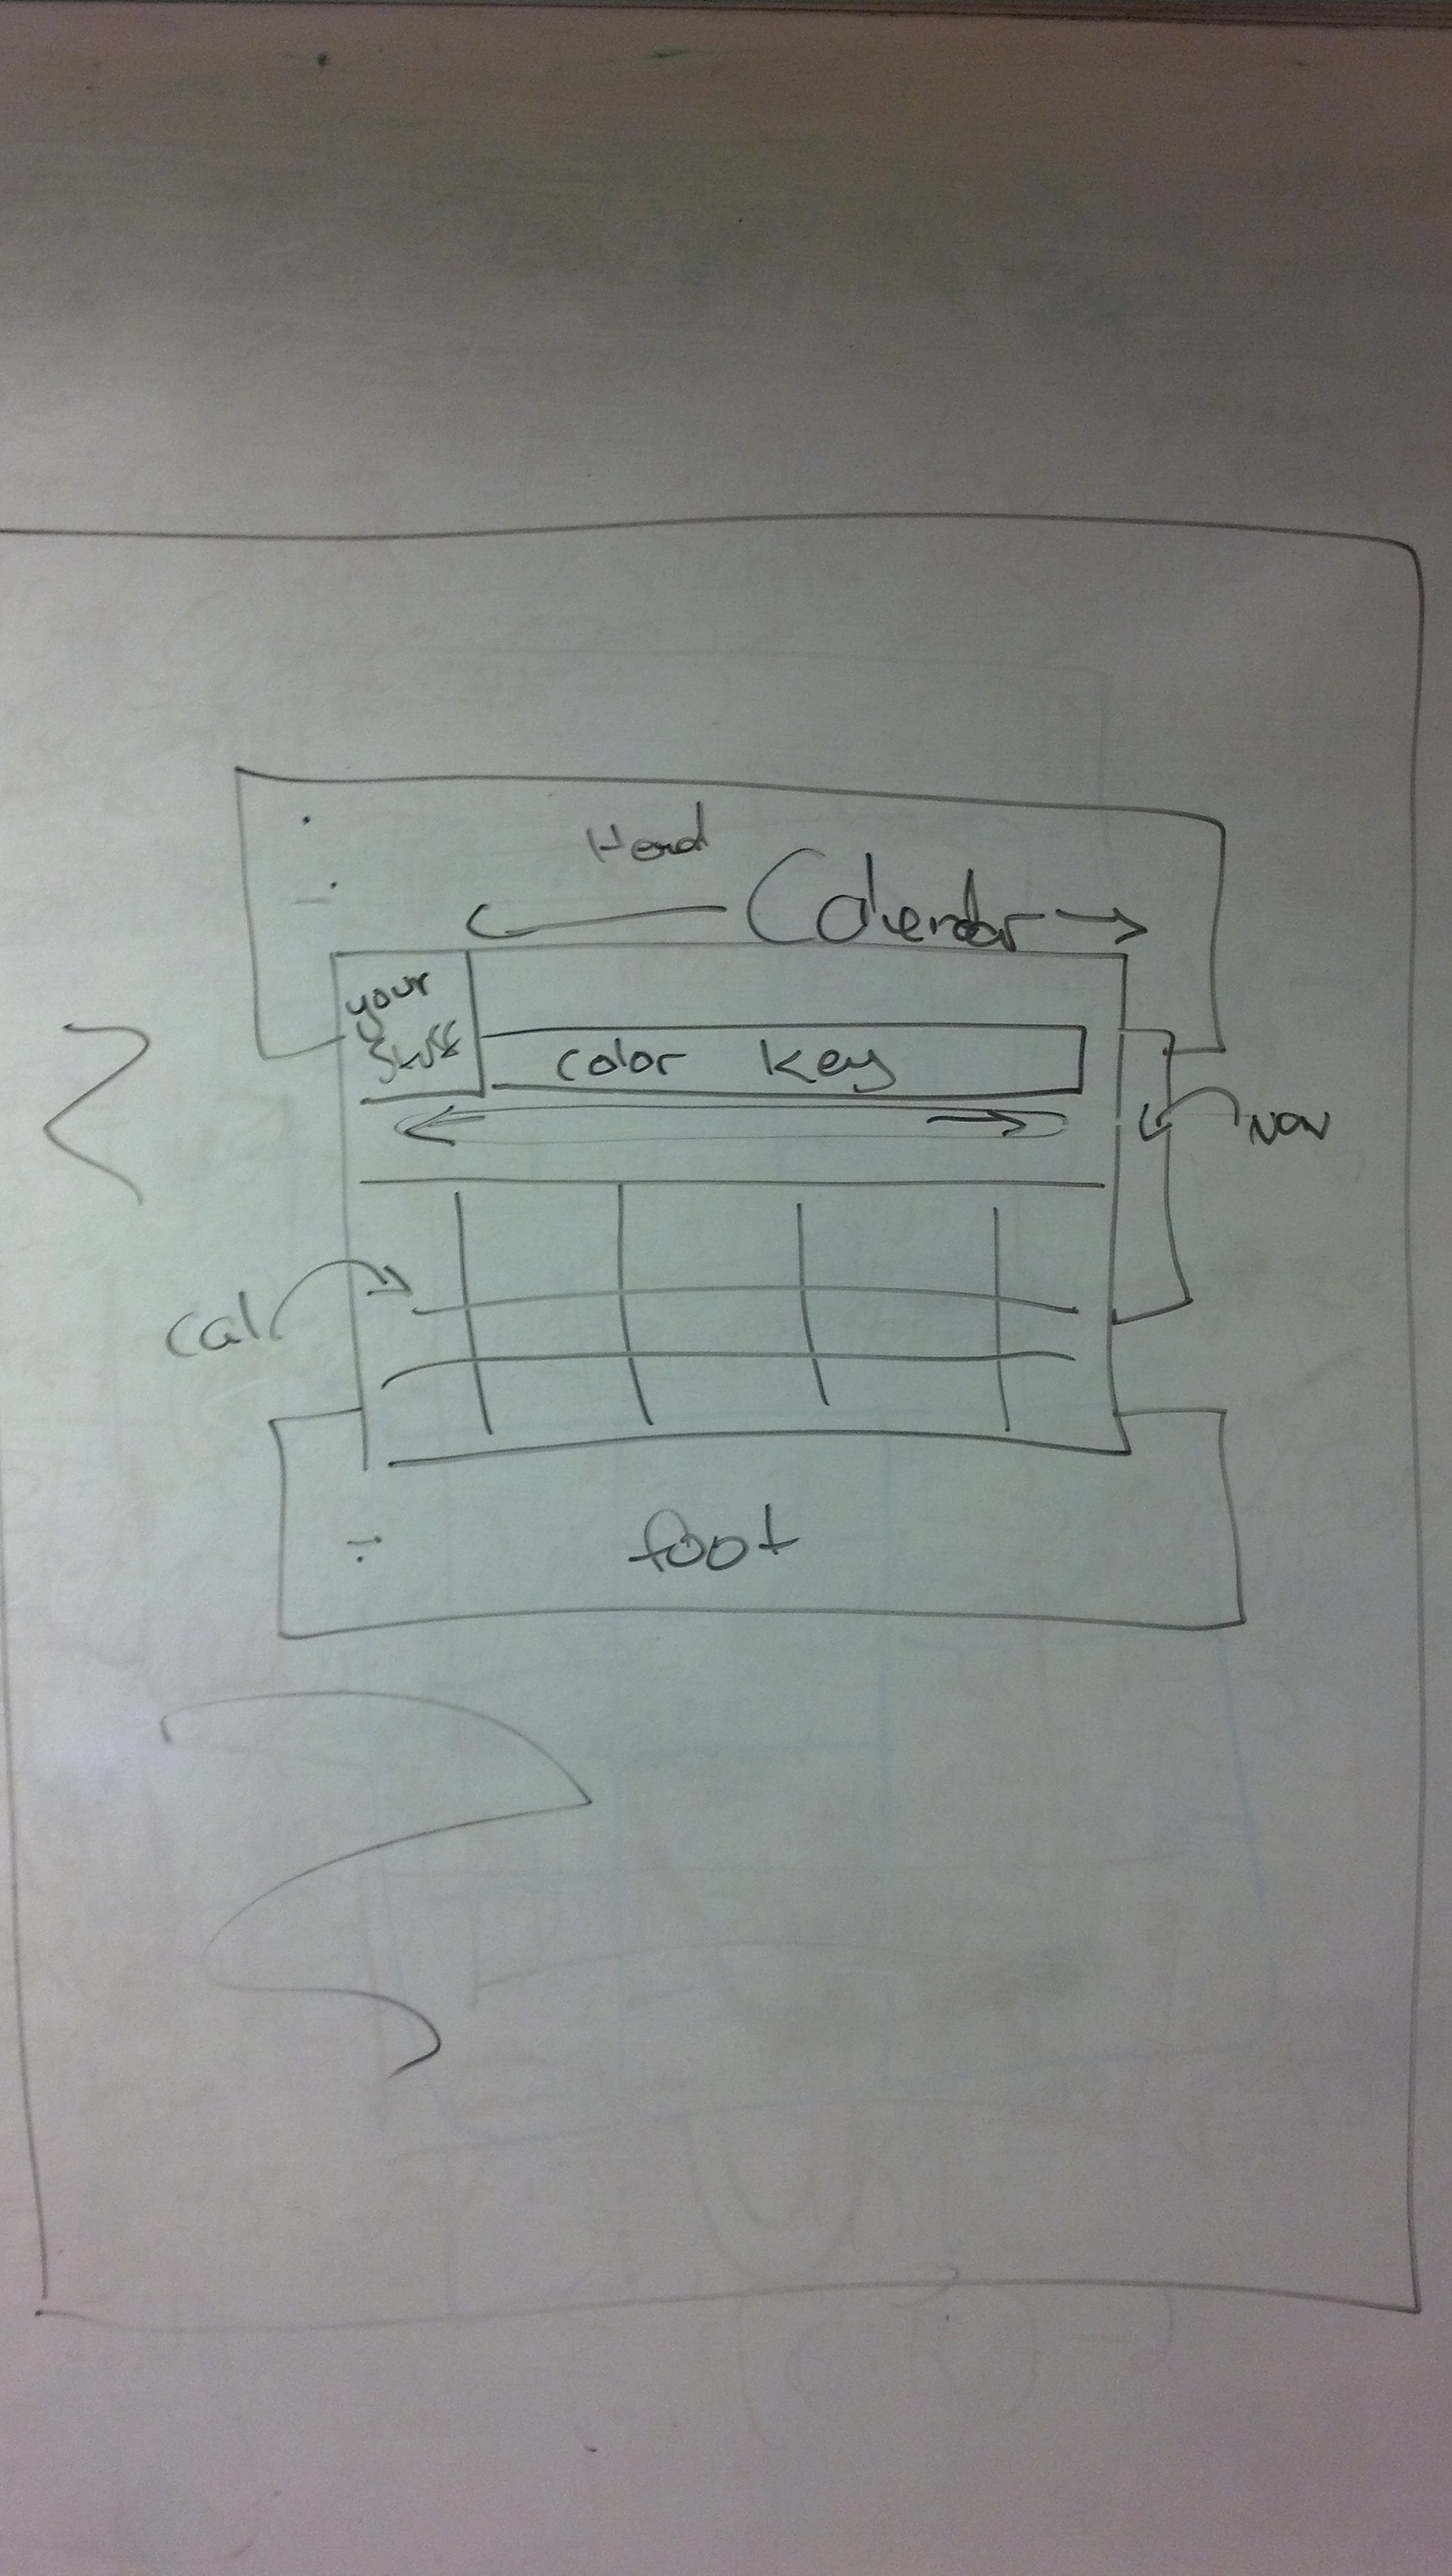 Head
Calendar
your
stuff
color key
Nav
cal
foot